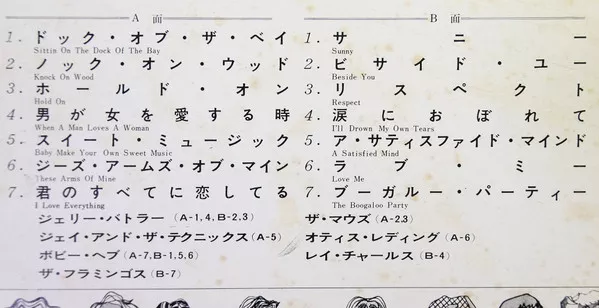 A 面
1. ドック・オブ・ザ・ベイ
Sittin On The Dock Of The Bay
2. ノック・オン・ウッド
Knock On Wood
3. ホールド・オン
Hold On
4. 男が女を愛する時
When A Man Loves A Woman
5. スイート・ミュージック
Baby Make Your Own Sweet Music
6. ジーズ・アームズ・オブ・マイン
These Arms Of Mine
7. 君のすべてに恋してる
I Love Everything
ジェリー・バトラー (A-1,4, B-2,3)
ジェイ・アンド・ザ・テクニックス (A-5)
ボビー・ヘブ (A-7, B-1,5,6)
ザ・フラミンゴス (B-7)
B 面
1. サニー
Sunny
2. ビサイド・ユー
Beside You
3. リスペクト
Respect
4. 涙におぼれて
I'll Drown My Own Tears
5. ア・サティスファイド・マインド
A Satisfied Mind
6. ラブ・ミー
Love Me
7. ブーガルー・パーティー
The Boogaloo Party
ザ・マウズ (A-2,3)
オティス・レディング (A-6)
レイ・チャールス (B-4)